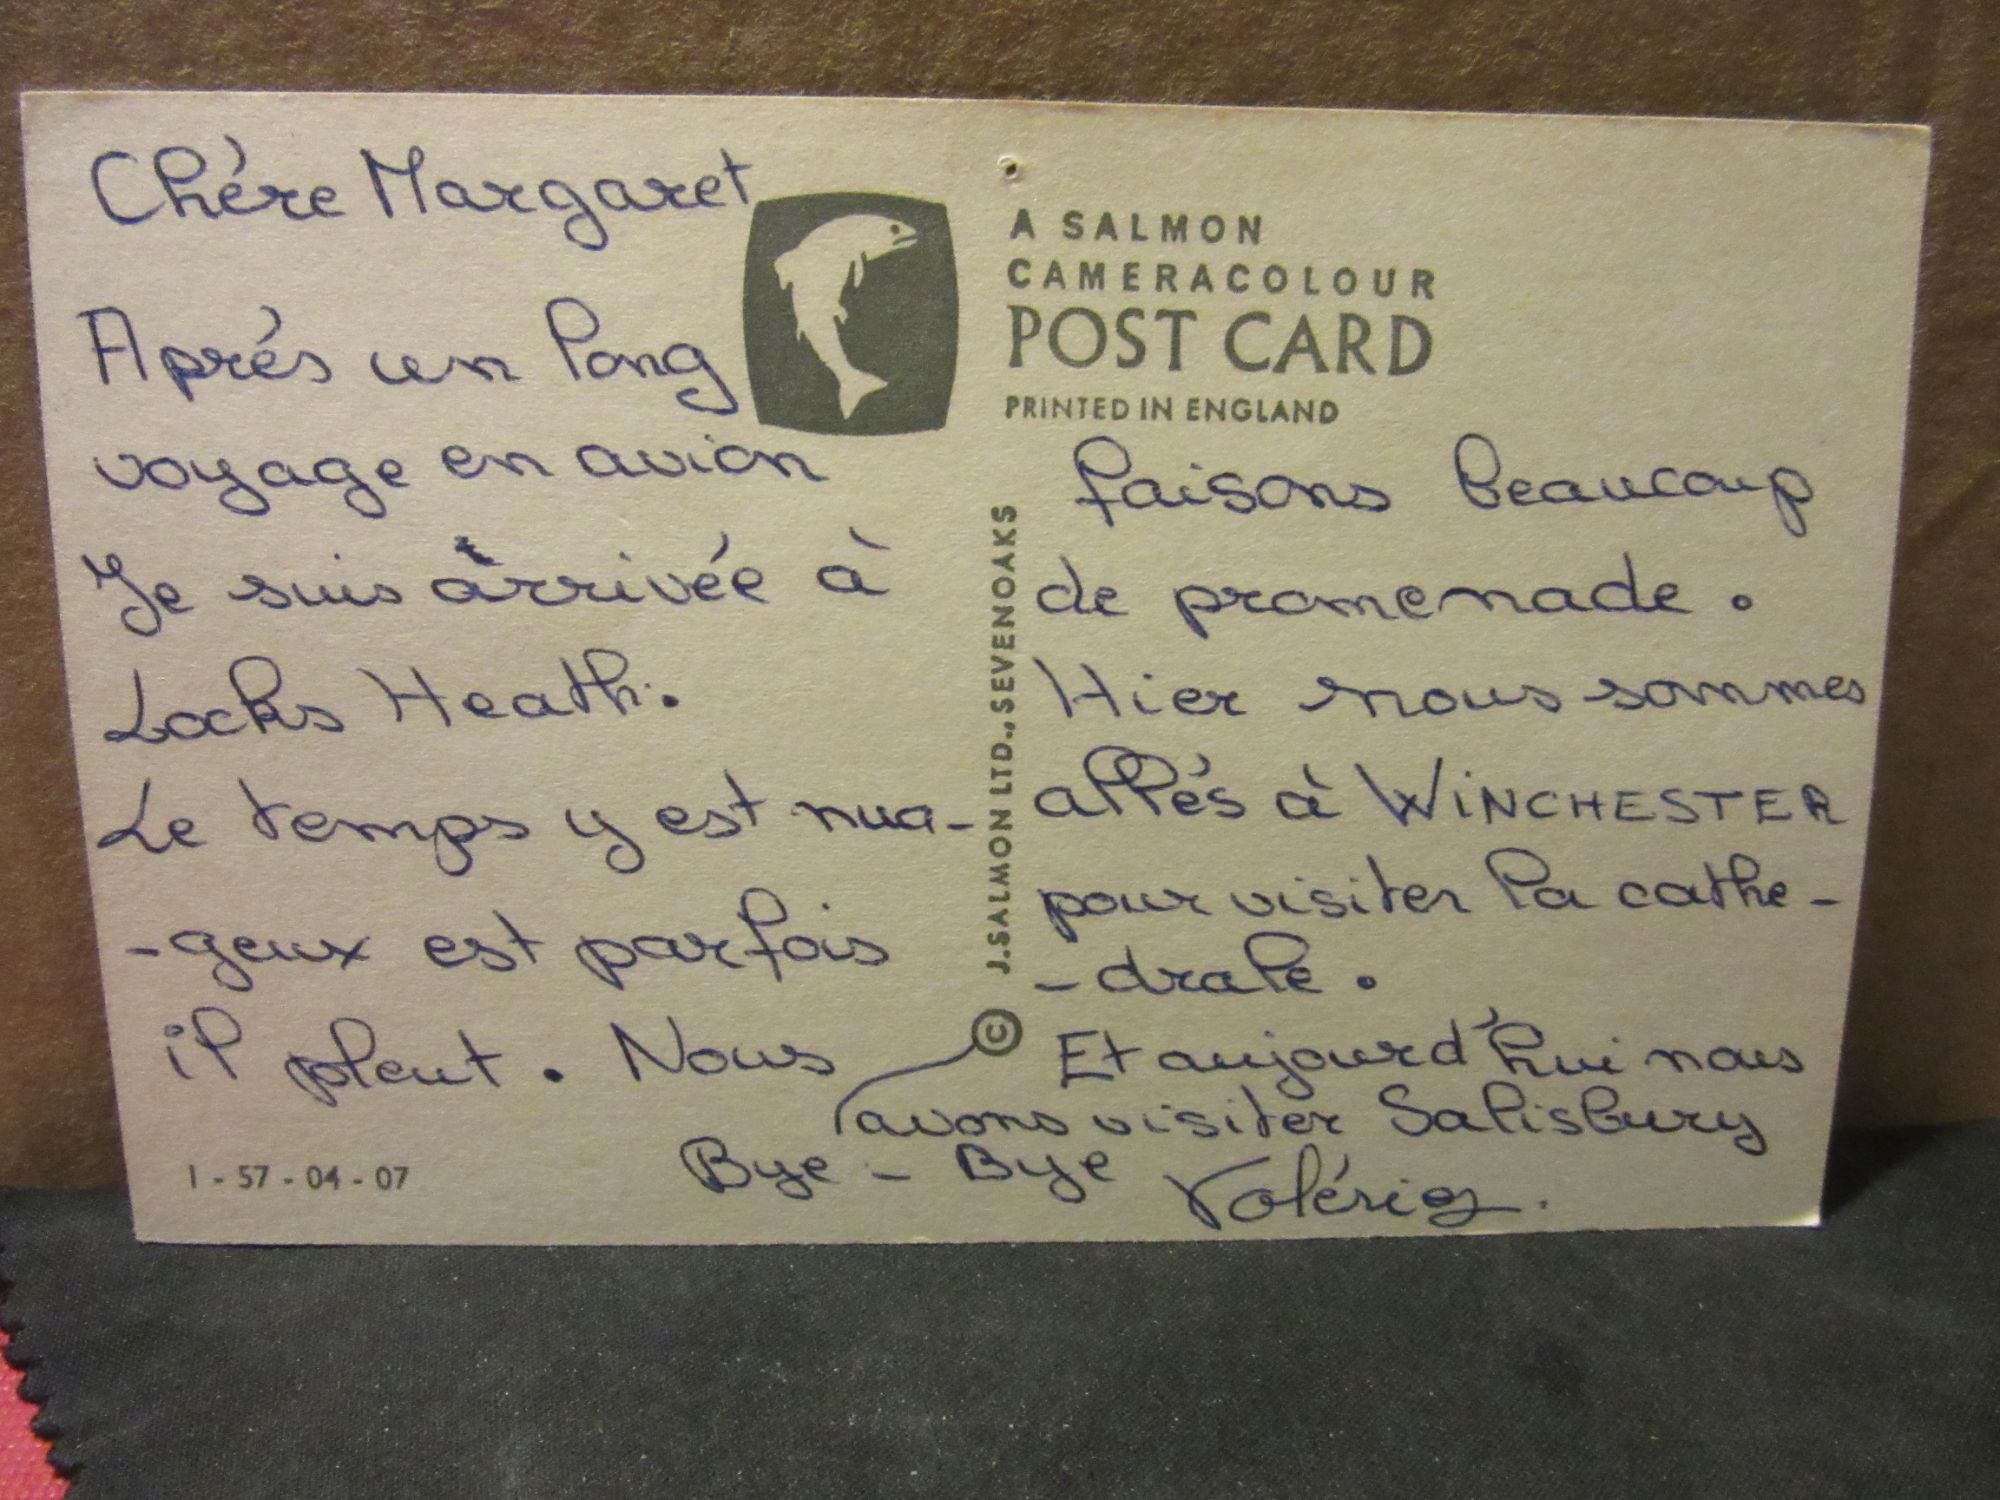 Chére Margaret
Aprés un long
voyage en avion
Je suis arrivée à
Locks Heath.
Le temps y est nua-
-geux est parfois
il pleut. Nous
A SALMON
CAMERACOLOUR
POST CARD
PRINTED IN ENGLAND
faisons beaucoup
de promenade.
Hier nous sommes
allés à WINCHESTER
pour visiter la cathe-
-drale.
Et aujourd'hui nous
avons visiter Salisbury
Bye - Bye
Valérie.
© J. SALMON LTD., SEVENOAKS
1 - 57 - 04 - 07